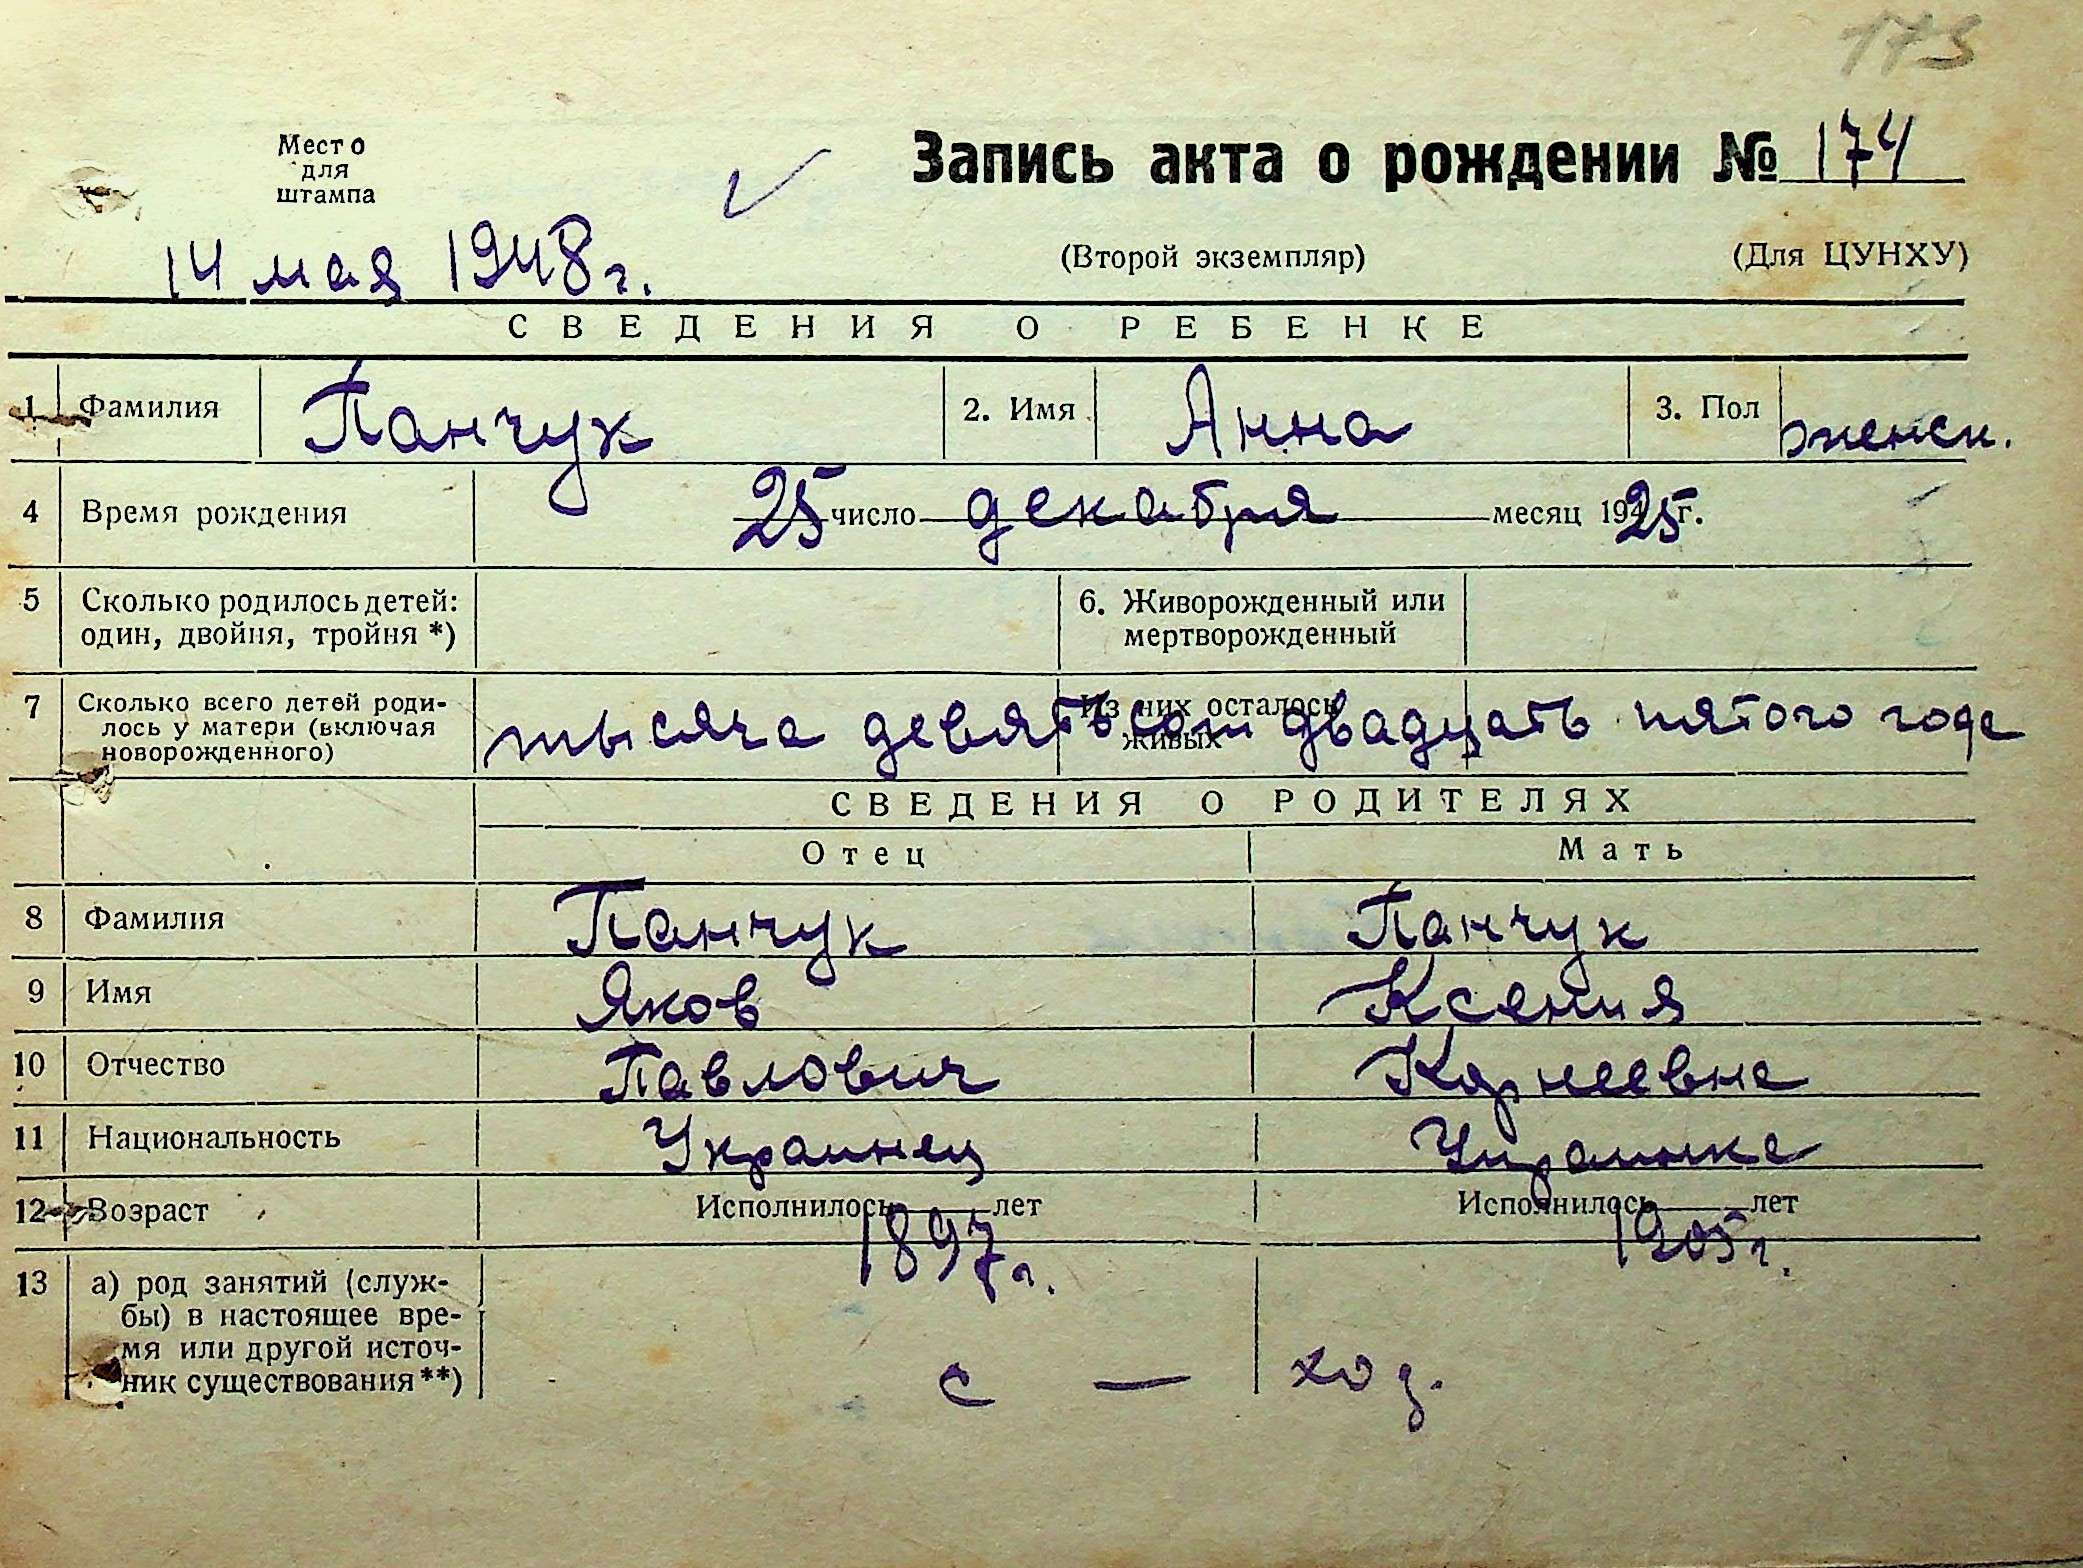 173
Место
для
штампа
Запись акта о рождении № 174
14 мая 1948 г.
(Второй экземпляр) (Для ЦУНХУ)
СВЕДЕНИЯ О РЕБЕНКЕ
1 Фамилия Панчук 2. Имя Анна 3. Пол женск.
4 Время рождения 25 число декабря месяц 1925 г.
5 Сколько родилось детей: 6. Живорожденный или
один, двойня, тройня *) мертворожденный
7 Сколько всего детей роди- Из них осталось
лось у матери (включая живых
новорожденного)
тысяча девятьсот двадцать пятого года
СВЕДЕНИЯ О РОДИТЕЛЯХ
Отец Мать
8 Фамилия Панчук Панчук
9 Имя Яков Ксения
10 Отчество Павлович Корнеевна
11 Национальность Украинец Украинка
12 Возраст Исполнилось лет Исполнилось лет
1897 г. 1905 г.
13 а) род занятий (служ-
бы) в настоящее вре-
мя или другой источ-
ник существования **) с — хоз.